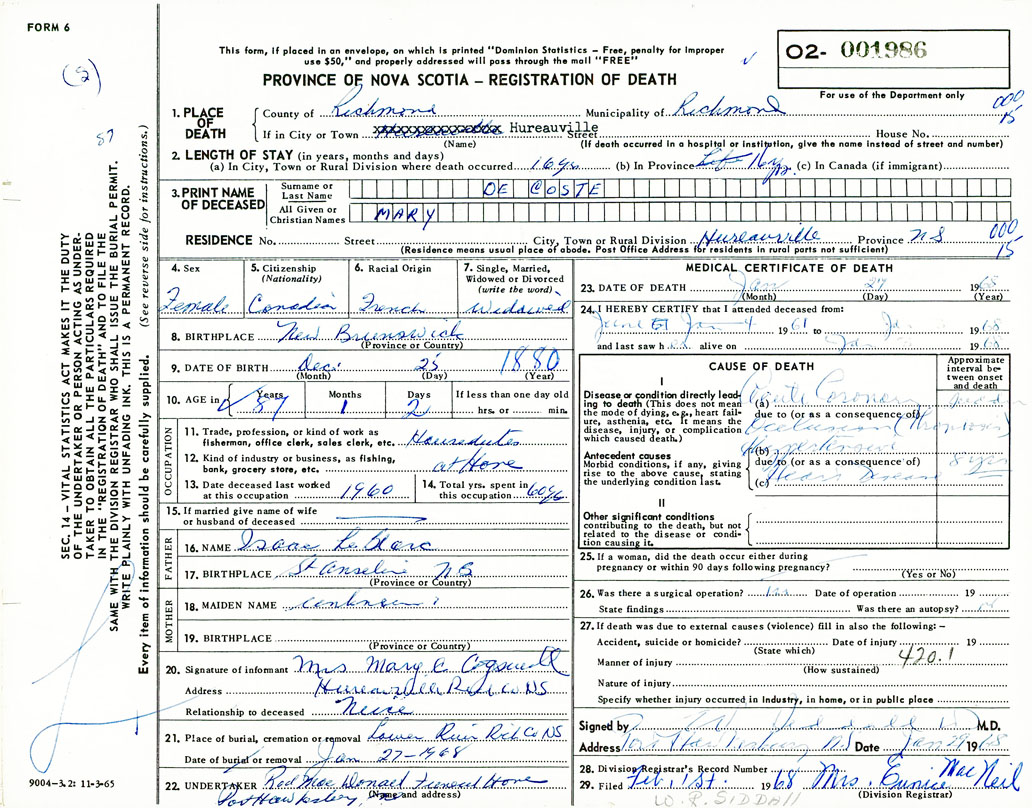 FORM 6
This form, if placed in an envelope, on which is printed "Dominion Statistics – Free, penalty for improper
use $50," and properly addressed will pass through the mail "FREE"
O2- 001986
For use of the Department only
PROVINCE OF NOVA SCOTIA – REGISTRATION OF DEATH
(S)
87
000
15
1. PLACE OF DEATH
County of Richmond Municipality of Richmond
If in City or Town Hureauville Street House No.
(Name) (If death occurred in a hospital or institution, give the name instead of street and number)
2. LENGTH OF STAY (in years, months and days)
(a) In City, Town or Rural Division where death occurred 16 yrs (b) In Province (c) In Canada (if immigrant)
3. PRINT NAME OF DECEASED
Surname or Last Name DE COSTE
All Given or Christian Names MARY
RESIDENCE No. Street City, Town or Rural Division Hureauville Province NS
000
15
(Residence means usual place of abode. Post Office Address for residents in rural parts not sufficient)
SEC. 14 – VITAL STATISTICS ACT MAKES IT THE DUTY
OF THE UNDERTAKER OR PERSON ACTING AS UNDER-
TAKER TO OBTAIN ALL THE PARTICULARS REQUIRED
IN THE "REGISTRATION OF DEATH" AND TO FILE THE
SAME WITH THE DIVISION REGISTRAR WHO SHALL ISSUE THE BURIAL PERMIT.
WRITE PLAINLY WITH UNFADING INK. THIS IS A PERMANENT RECORD.
Every item of information should be carefully supplied. (See reverse side for instructions.)
4. Sex
Female
5. Citizenship
(Nationality)
Canadian
6. Racial Origin
French
7. Single, Married,
Widowed or Divorced
(write the word)
Widowed
8. BIRTHPLACE New Brunswick
(Province or Country)
9. DATE OF BIRTH Dec. 25 1880
(Month) (Day) (Year)
10. AGE in Years Months Days If less than one day old
87 1 2 hrs. or min.
OCCUPATION
11. Trade, profession, or kind of work as
fisherman, office clerk, sales clerk, etc. Housedutes
12. Kind of industry or business, as fishing,
bank, grocery store, etc. at Home
13. Date deceased last worked
at this occupation 1960
14. Total yrs. spent in
this occupation 60 yrs
15. If married give name of wife
or husband of deceased
FATHER
16. NAME Isaac LeBlanc
17. BIRTHPLACE St Anseline NB
(Province or Country)
MOTHER
18. MAIDEN NAME
19. BIRTHPLACE
(Province or Country)
20. Signature of informant Mrs Mary C. Cogswell
Address Hureauville Rich Co NS
Relationship to deceased Neice
21. Place of burial, cremation or removal Lower River Rich Co NS
Date of burial or removal Jan 27-1968
22. UNDERTAKER Rod MacDonald Funeral Home
(Name and address)
Port Hawksbury
9004–3.2: 11-3-65
MEDICAL CERTIFICATE OF DEATH
23. DATE OF DEATH Jan 27 1968
(Month) (Day) (Year)
24. I HEREBY CERTIFY that I attended deceased from:
Jan 4 1961 to 1968
and last saw her alive on 1968
CAUSE OF DEATH
Approximate
interval be-
tween onset
and death
I
Disease or condition directly lead-
ing to death (This does not mean
the mode of dying, e.g., heart fail-
ure, asthenia, etc. It means the
disease, injury, or complication
which caused death.)
(a) Acute Coronary
due to (or as a consequence of)
Occlusion (Thrombosis)
Antecedent causes
Morbid conditions, if any, giving
rise to the above cause, stating
the underlying condition last.
(b) Hypertensive
due to (or as a consequence of) 8 yrs
(c) Heart Disease
II
Other significant conditions
contributing to the death, but not
related to the disease or condi-
tion causing it.
25. If a woman, did the death occur either during
pregnancy or within 90 days following pregnancy?
(Yes or No)
26. Was there a surgical operation? Date of operation 19
State findings Was there an autopsy?
27. If death was due to external causes (violence) fill in also the following: –
Accident, suicide or homicide? Date of injury 19
(State which)
420.1
Manner of injury
(How sustained)
Nature of injury
Specify whether injury occurred in industry, in home, or in public place
Signed by M.D.
Address Port Hawkesbury NS Date Jan 29 1968
28. Division Registrar's Record Number
29. Filed Feb. 1st. 1968 Mrs. Eunice MacNeil
(Division Registrar)
W. R. SIDDALL